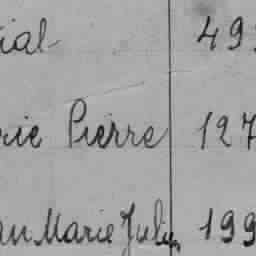 ial 49
rie Pierre 127
an Marie Julien 199